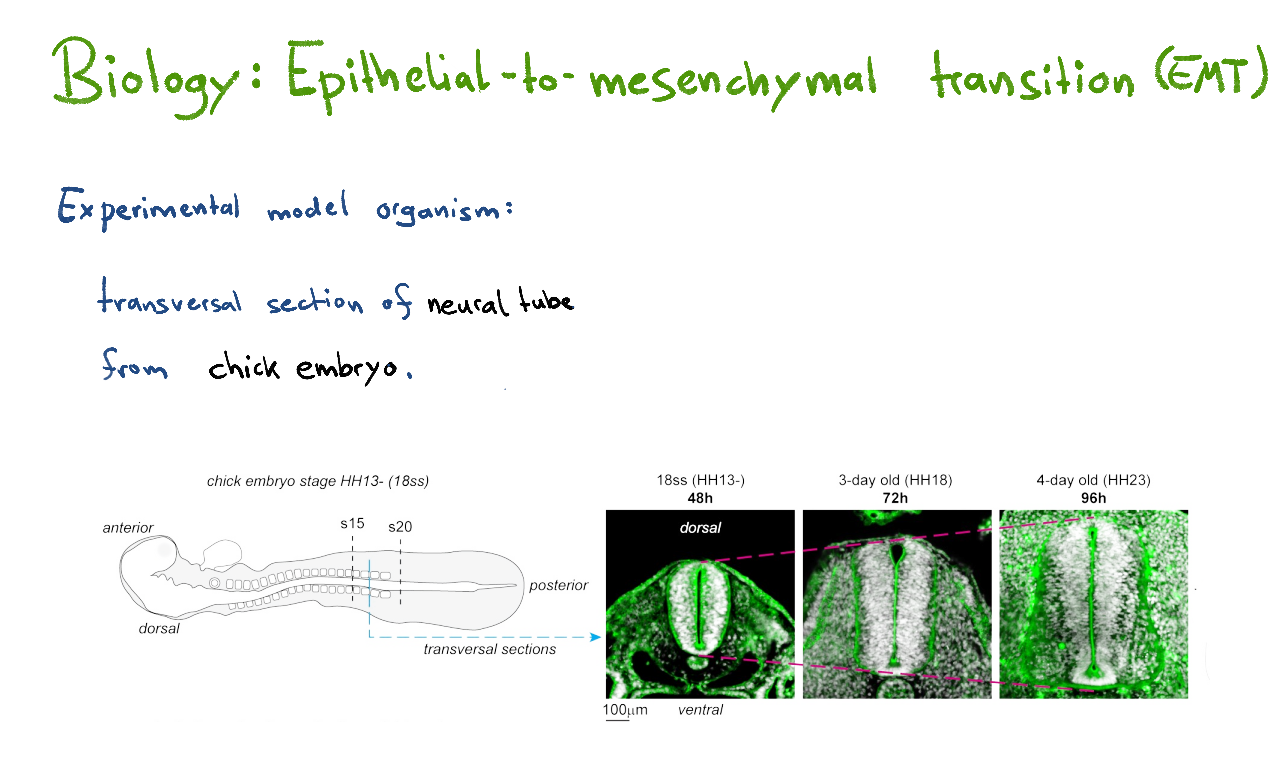 Biology: Epithelial-to-mesenchymal transition (EMT)
Experimental model organism:
transversal section of neural tube
from chick embryo.
chick embryo stage HH13- (18ss)
anterior
s15
s20
posterior
dorsal
transversal sections
18ss (HH13-)
48h
dorsal
100μm
ventral
3-day old (HH18)
72h
4-day old (HH23)
96h